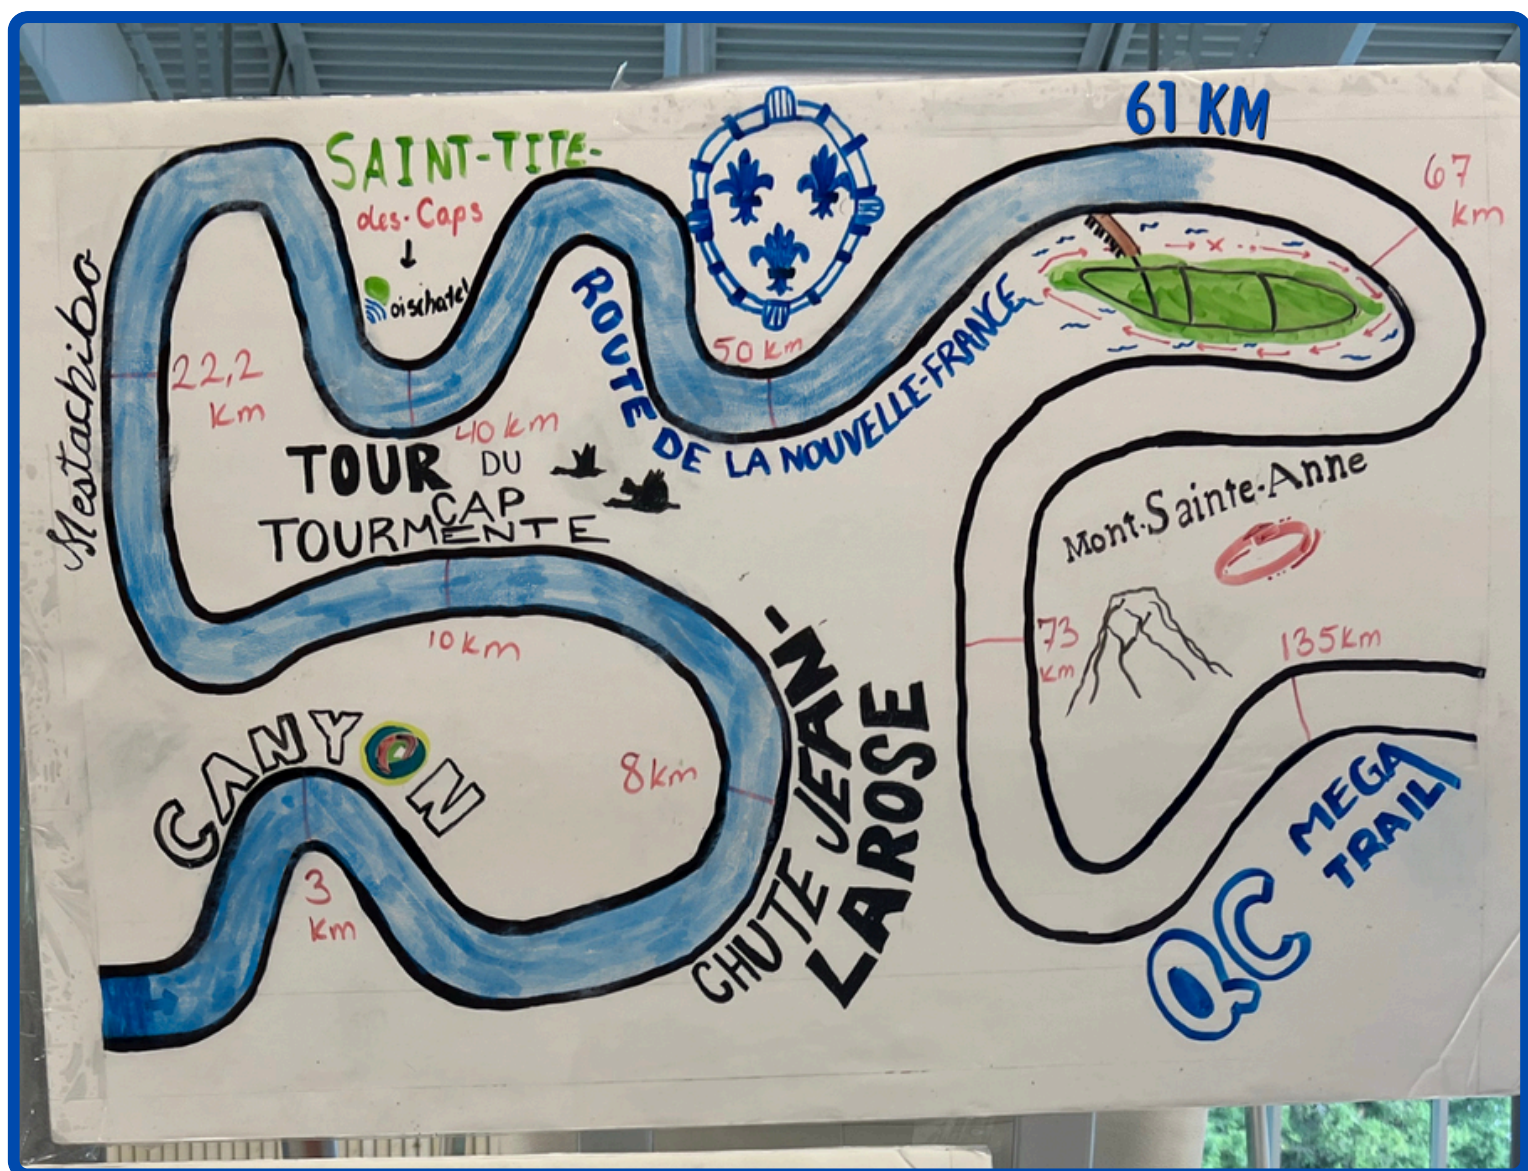 61 KM
SAINT-TITE-
des-Caps
oischatel
67
km
Mestachibo
22,2
km
40 km
50 km
ROUTE DE LA NOUVELLE-FRANCE
TOUR DU
CAP
TOURMENTE
10 km
Mont-Sainte-Anne
73
km
135km
CANYON
8km
3
km
CHUTE JEAN-
LAROSE
QC
MEGA
TRAIL